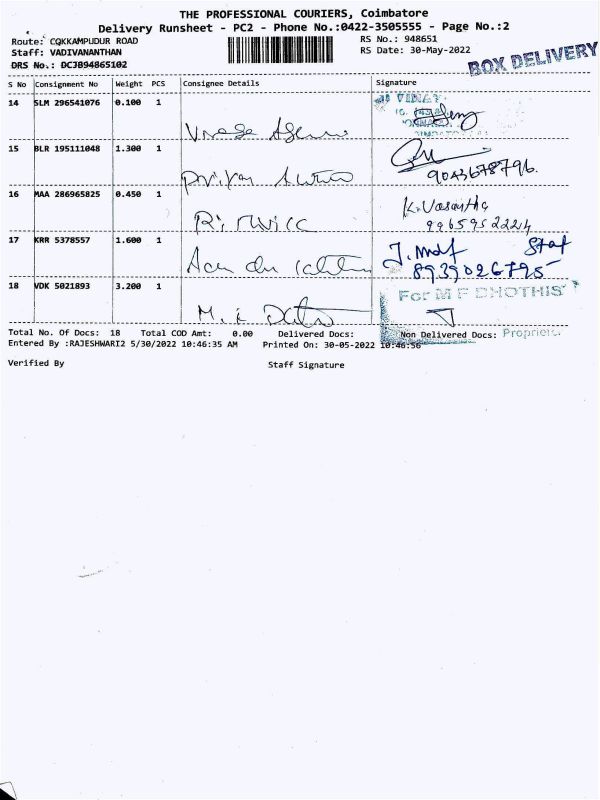 THE PROFESSIONAL COURIERS, Coimbatore
Delivery Runsheet - PC2 - Phone No.:0422-3505555 - Page No.:2
Route: COKKAMPUDUR ROAD
RS No.: 948651
Staff: VADIVANANTHAN
RS Date: 30-May-2022
DRS No.: DCJB94865102
BOX DELIVERY
S No Consignment No Weight PCS Consignee Details Signature
14 SLM 296541076 0.100 1
15 BLR 195111048 1.300 1
9043678796.
16 MAA 286965825 0.450 1
K. Vasantha
9965952224
17 KRR 5378557 1.600 1
8939026795
18 VDK 5021893 3.200 1
For M F DHOTHIS
Total No. Of Docs: 18 Total COD Amt: 0.00 Delivered Docs: Non Delivered Docs:
Entered By :RAJESHWARI2 5/30/2022 10:46:35 AM Printed On: 30-05-2022 10:46:56
Verified By Staff Signature